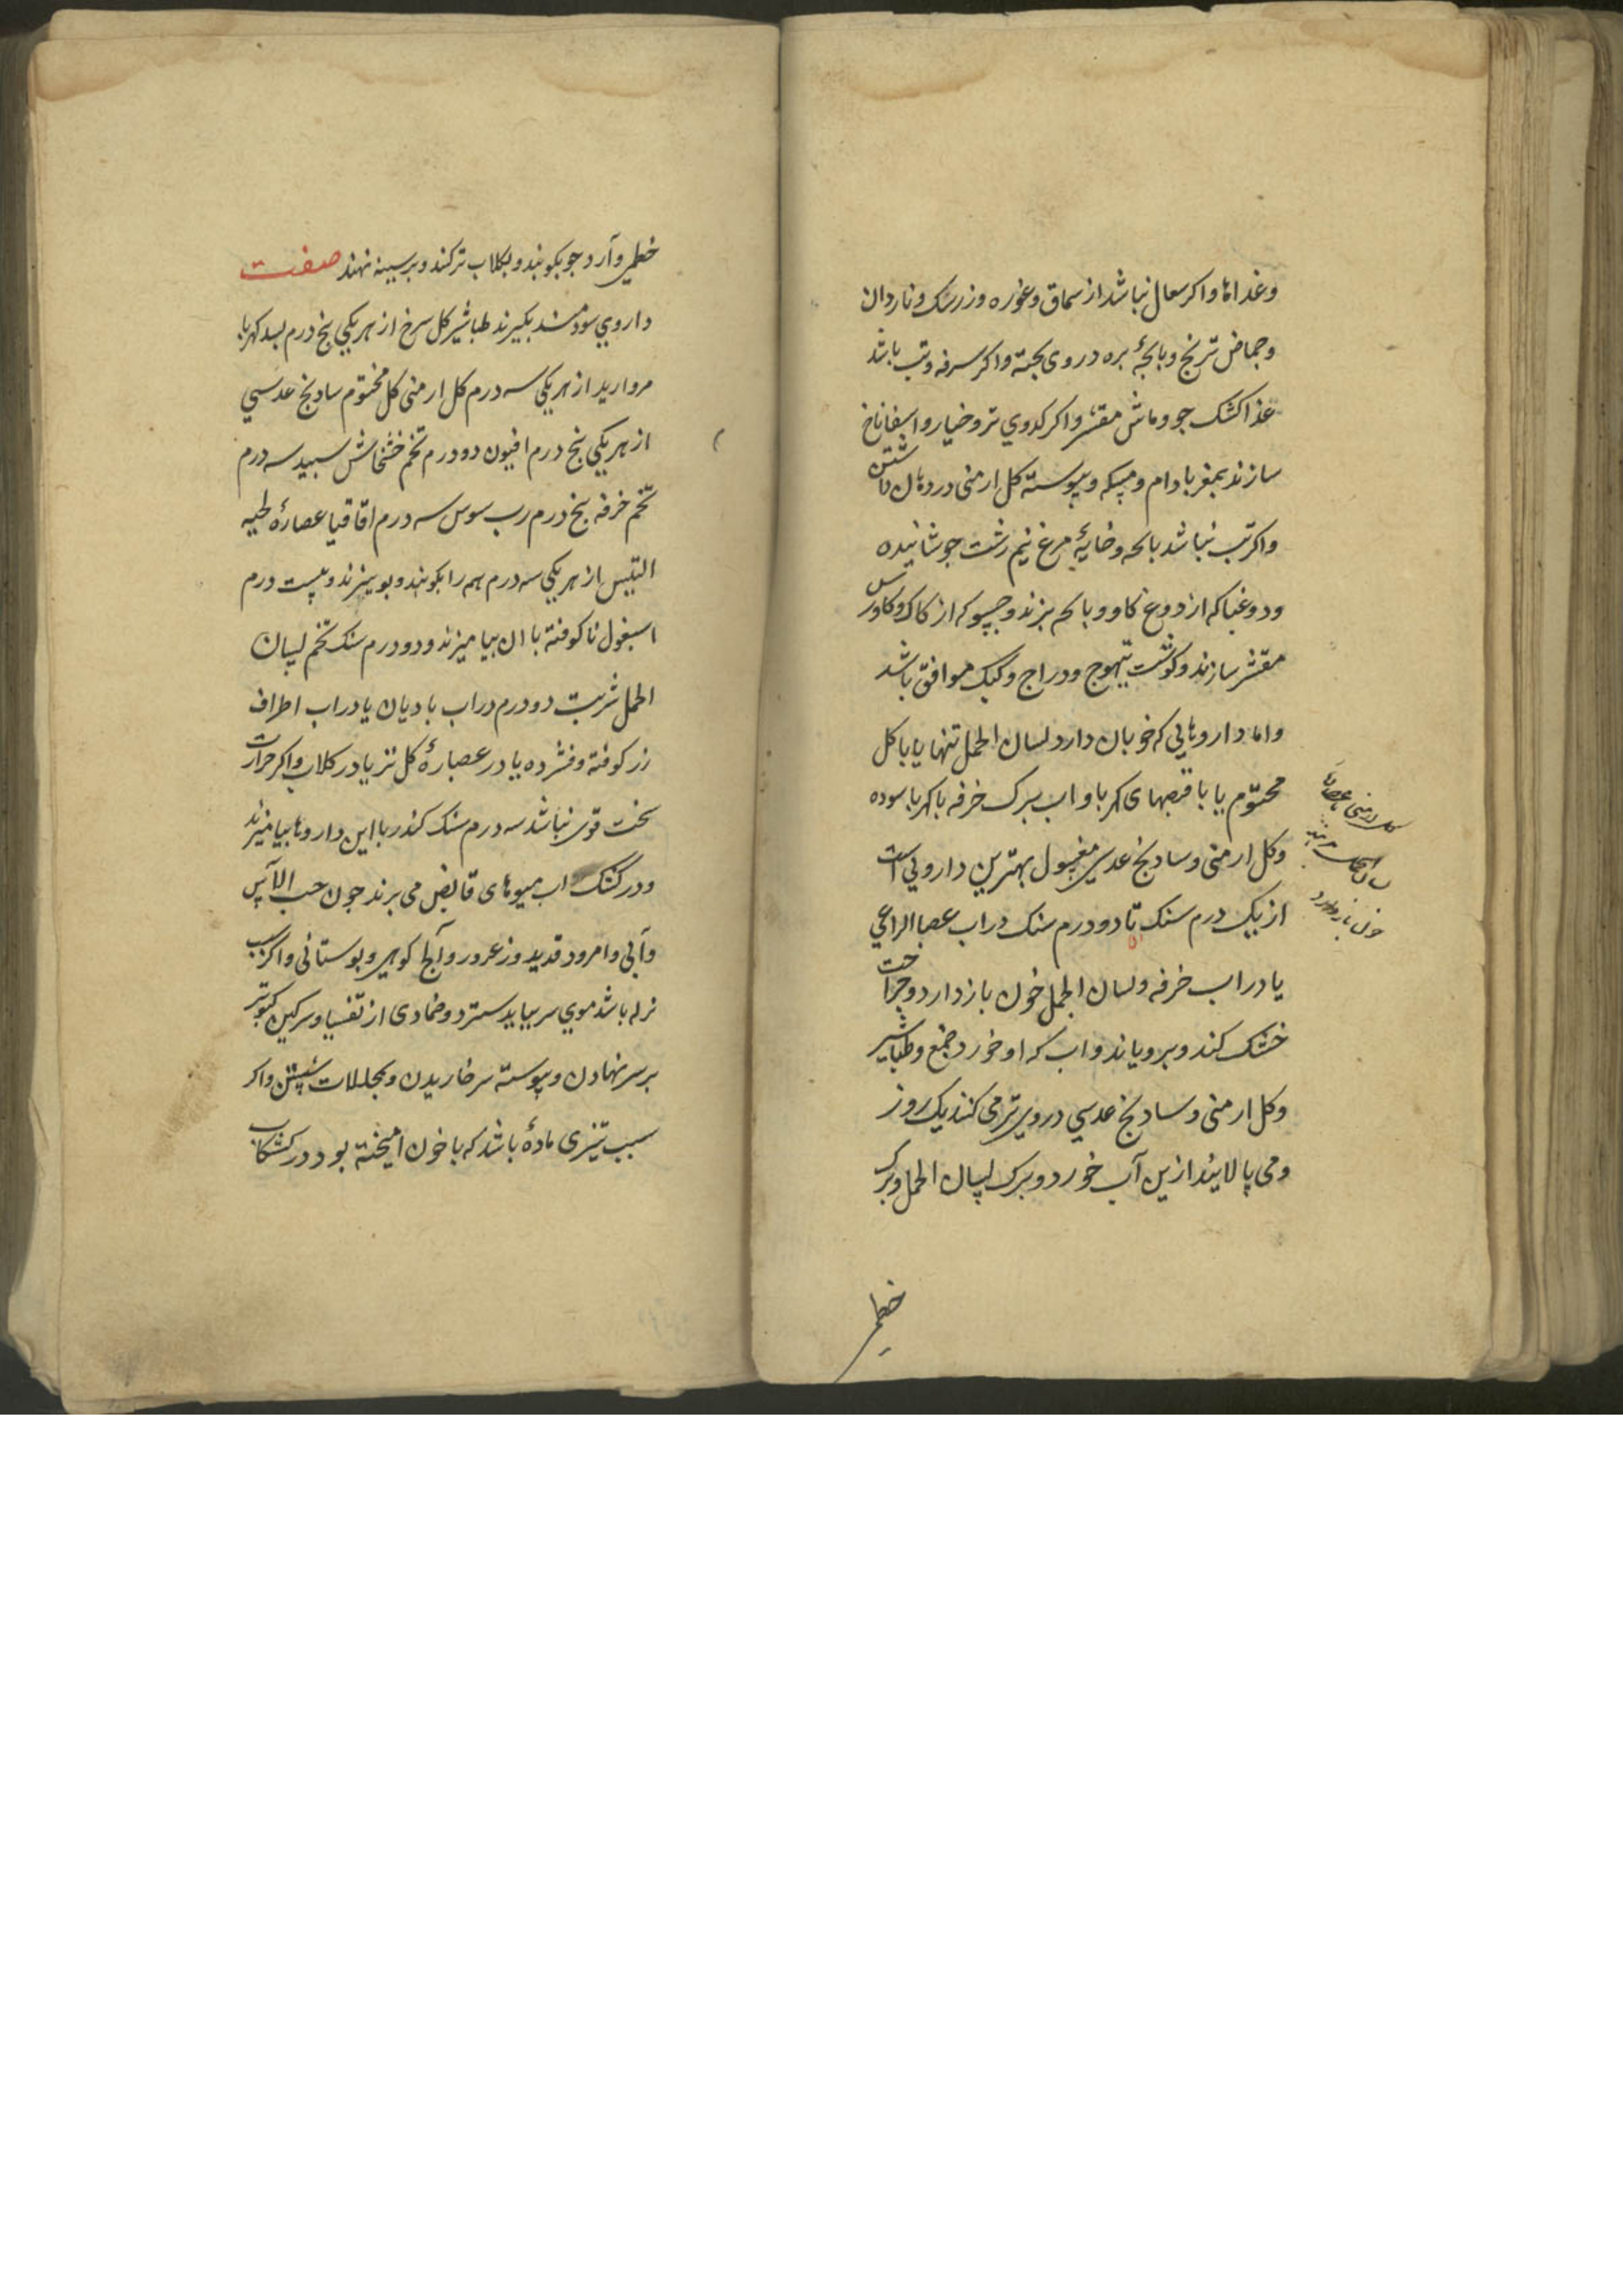 وغذاها واكر سعال نباشد از سماق وغوره وزرشك وناردان
وحماض ترنج وبابجهٔ بره دروى بخته واكر سرفه وتب باشد
غذا كشك جو وماش مقشر واكر كدوي تر وخيار واسفاناخ
سازند بمغز بادام ومسكه وپيوسته كل ارمنى در دهان داشتن
واكر تب نباشد بابجه وخايهٔ مرغ نيم رشت جوشانيده
ودوغبا كه از دوغ كاو وبابجه بزند وحسو كه از كاك وكاورس
مقشر سازند وكوشت تيهوج ودراج وكبك موافق باشد
واما داروهايى كه خو بان دارد لسان الحمل تنها يا با كل
مختوم يا با قرصهاى كهربا واب برك خرفه با كهربا سوده
وكل ارمنى وسادنج عدسى مغسول بهترين دارويى است
از يك درم سنك تا دو درم سنك در اب عصا الراعي
يا در اب خرفه ولسان الحمل خون باز دارد وجراحت
خشك كند وبروياند واب كه او خورد ضمغ وطباشير
وكل ارمنى وسادنج عدسي دروى تر مى كند يك روز
ومى پالايند ازين آب خورد وبرك لسان الحمل وبرك
خطمى
خون باز دارد
خطمى وآرد جو بكوبند وبكلاب تر كنند وبر سينه نهند صفت
داروي سودمند بكيرند طباشير كل سرخ از هر يكي پنج درم بسد كهربا
مرواريد از هر يكي سه درم كل ارمنى كل مختوم سادنج عدسي
از هر يكي پنج درم افيون دو درم تخم خشخاش سپيد سه درم
تخم خرفه پنج درم رب سوس سه درم اقاقيا عصارهٔ لحيه
التيس از هر يكي سه درم همه را بكوبند وبويزند وبيست درم
اسبغول ناكوفته با ان بياميزند ودو درم سنك تخم لسان
الحمل شربت دو درم در اب باديان يا در اب اطراف
رز كوفته وفشرده يا در عصارهٔ كل تر يا در كلاب واكر حرارت
سخت قوى نباشد سه درم سنك كندر با اين داروها بياميزند
ودر كشك اب ميوهاى قابض مى برند جون حب الآس
وآبى وامرود قديد وزعرور وآلج كوهى وبوستانى واكر سبب
نزله باشد موي سر ببايد سترد وضمادى از تفسيا وسركين كبوتر
بر سر نهادن وپيوسته سر خاريدن وبمحللات شستن واكر
سبب تيزى مادهٔ باشد كه با خون اميخته بود در كشكاب